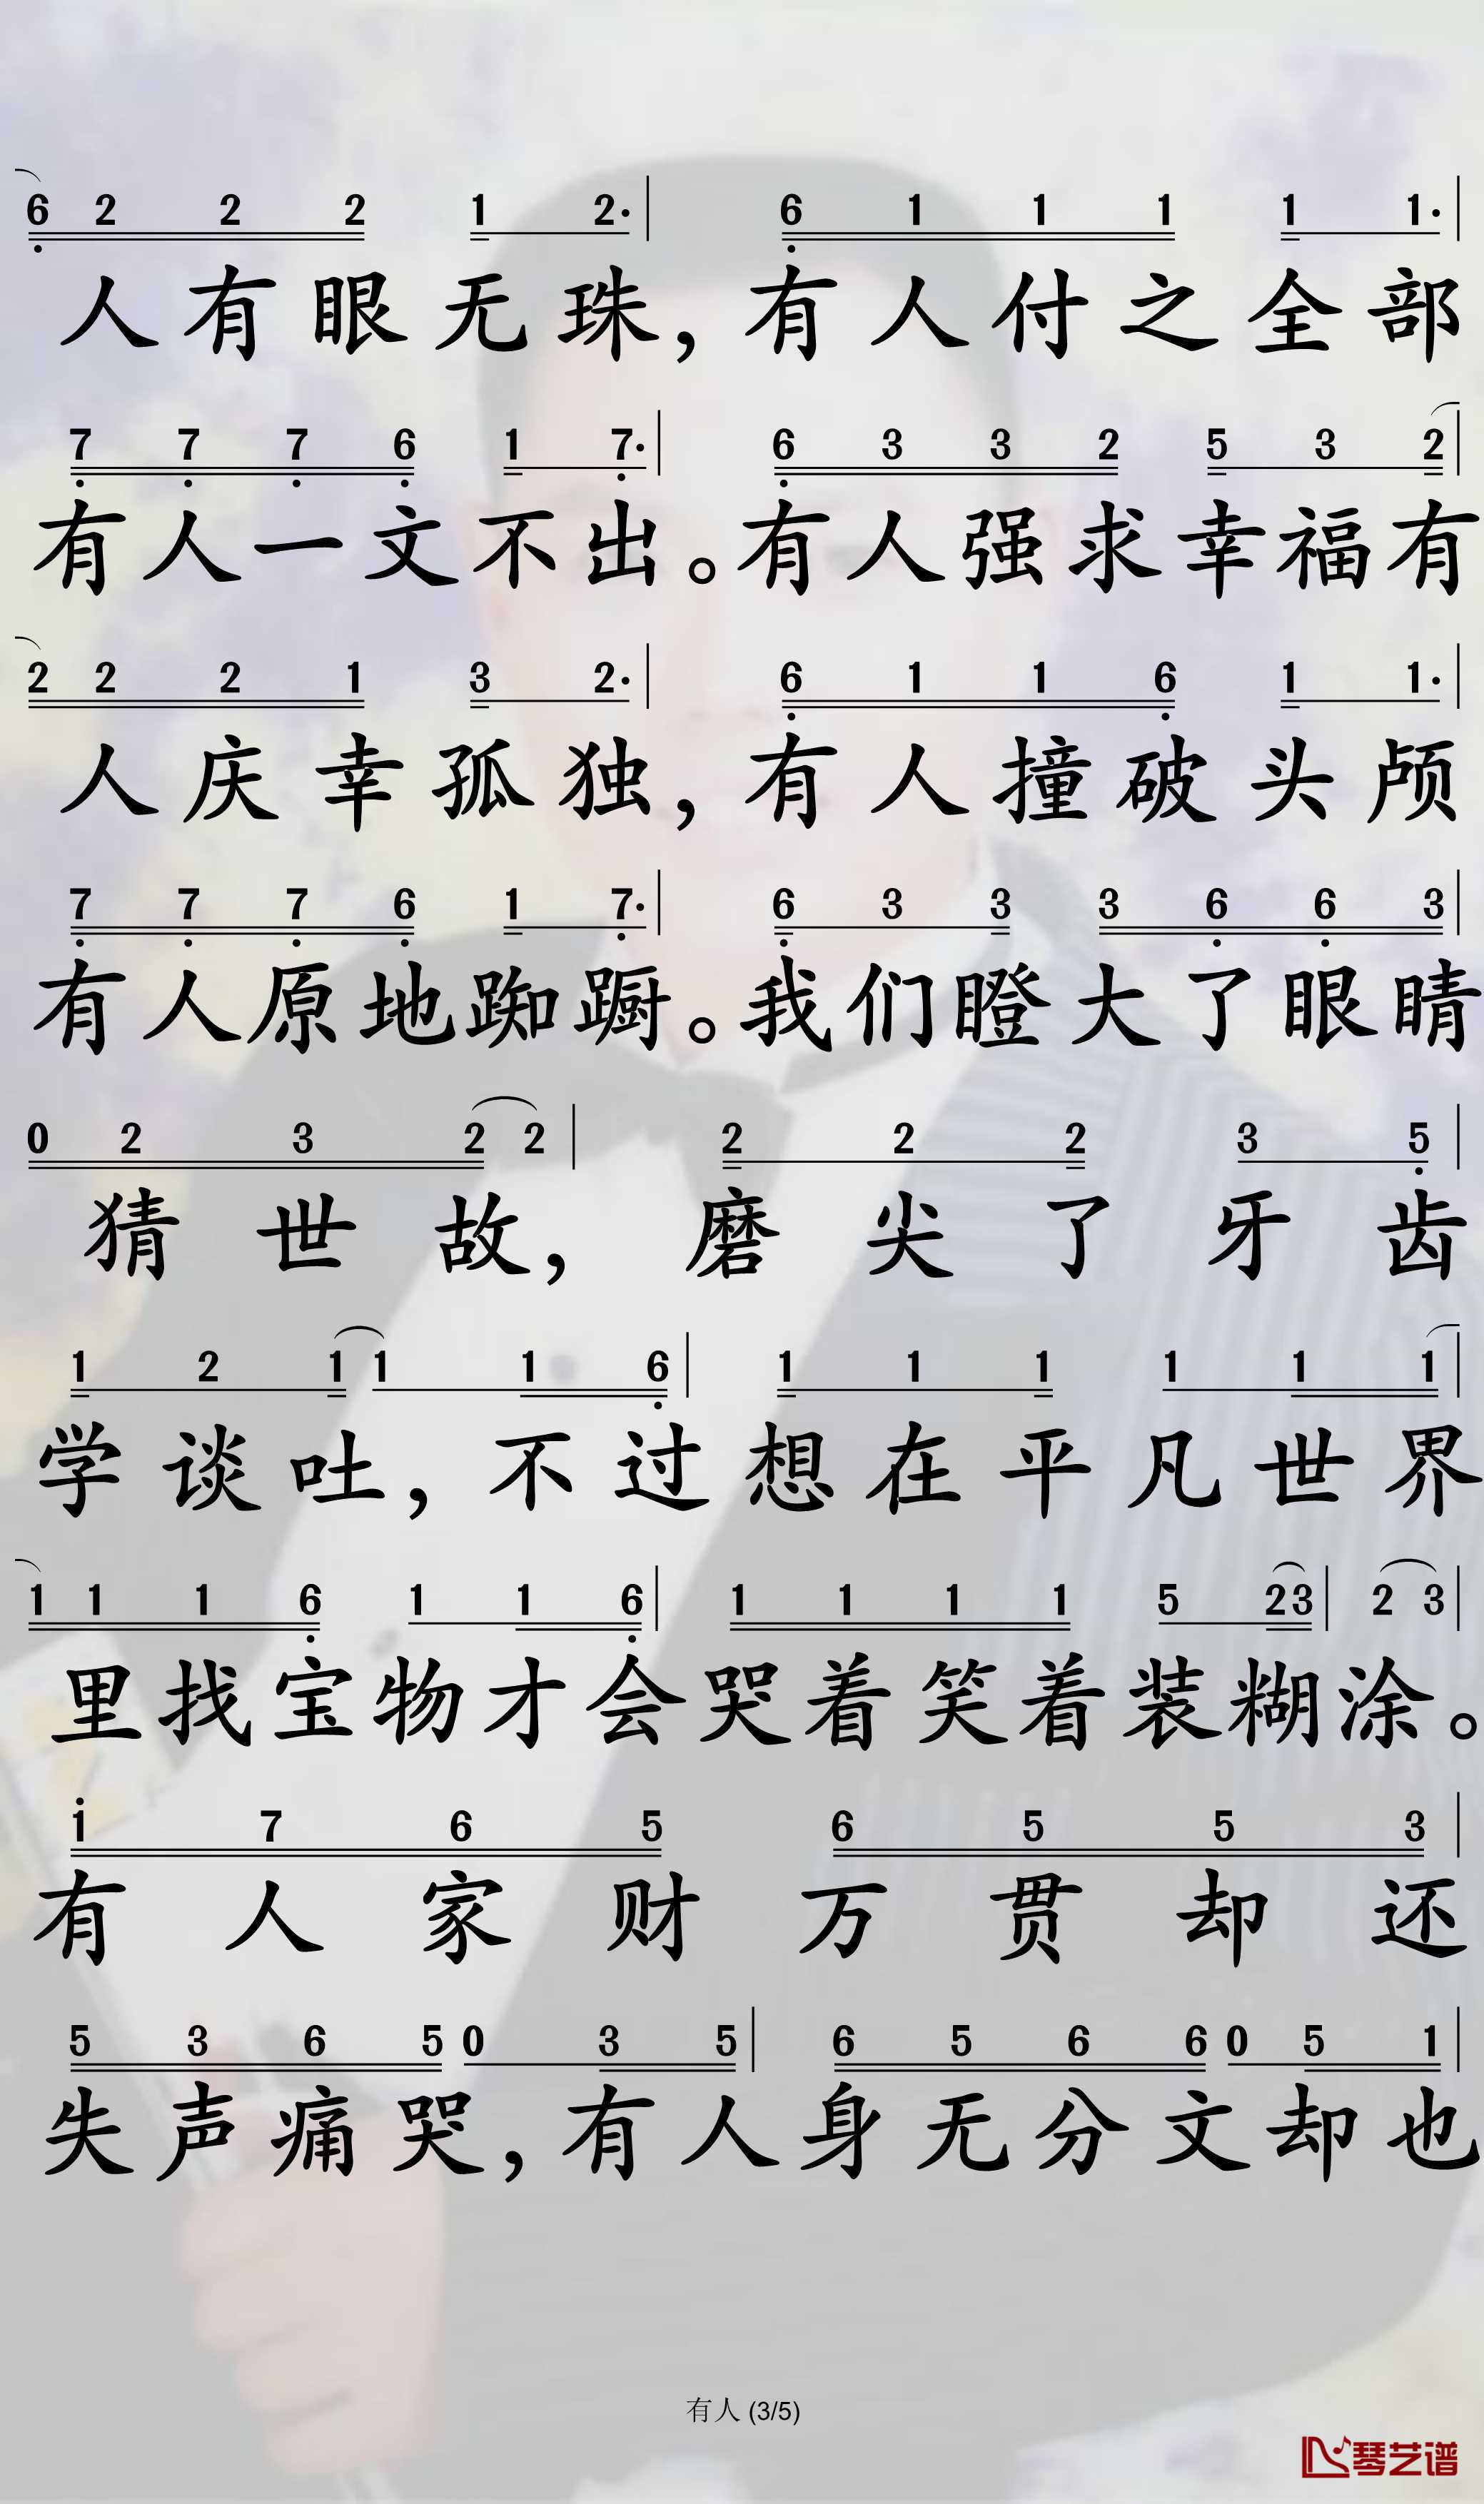 6 2 2 2 1 2· | 6 1 1 1 1 1· |
人有眼无珠，有人付之全部
7 7 7 6 1 7· | 6 3 3 2 5 3 2 |
有人一文不出。有人强求幸福有
2 2 2 1 3 2· | 6 1 1 6 1 1· |
人庆幸孤独，有人撞破头颅
7 7 7 6 1 7· | 6 3 3 3 6 6 3 |
有人原地踟蹰。我们瞪大了眼睛
0 2 3 2 2 | 2 2 2 3 5 |
猜世故，磨尖了牙齿
1 2 1 1 1 6 | 1 1 1 1 1 1 |
学谈吐，不过想在平凡世界
1 1 1 6 1 1 6 | 1 1 1 1 5 2 3 | 2 3 |
里找宝物才会哭着笑着装糊涂。
1 7 6 5 6 5 5 3 |
有人家财万贯却还
5 3 6 5 0 3 5 | 6 5 6 6 0 5 1 |
失声痛哭，有人身无分文却也
有人 (3/5)
琴艺谱